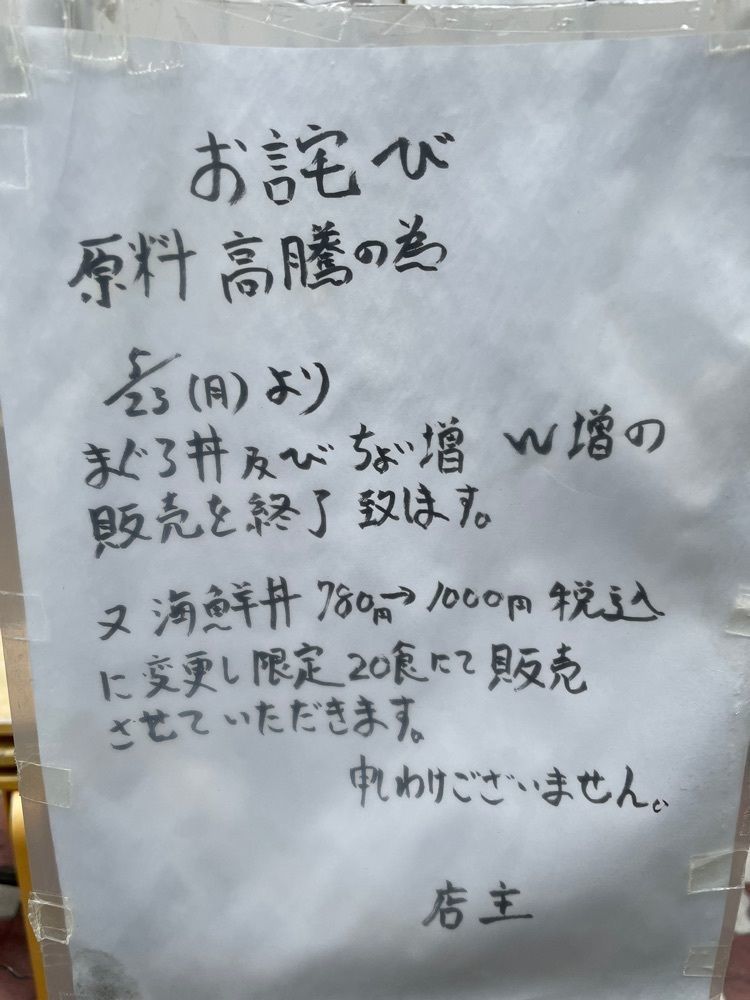 お詫び
原料高騰の為
5/23(月)より
まぐろ丼及びちょい増 W増の
販売を終了致します。
又 海鮮丼 780円→1000円 税込
に変更し限定20食にて販売
させていただきます。
申しわけございません。
店主